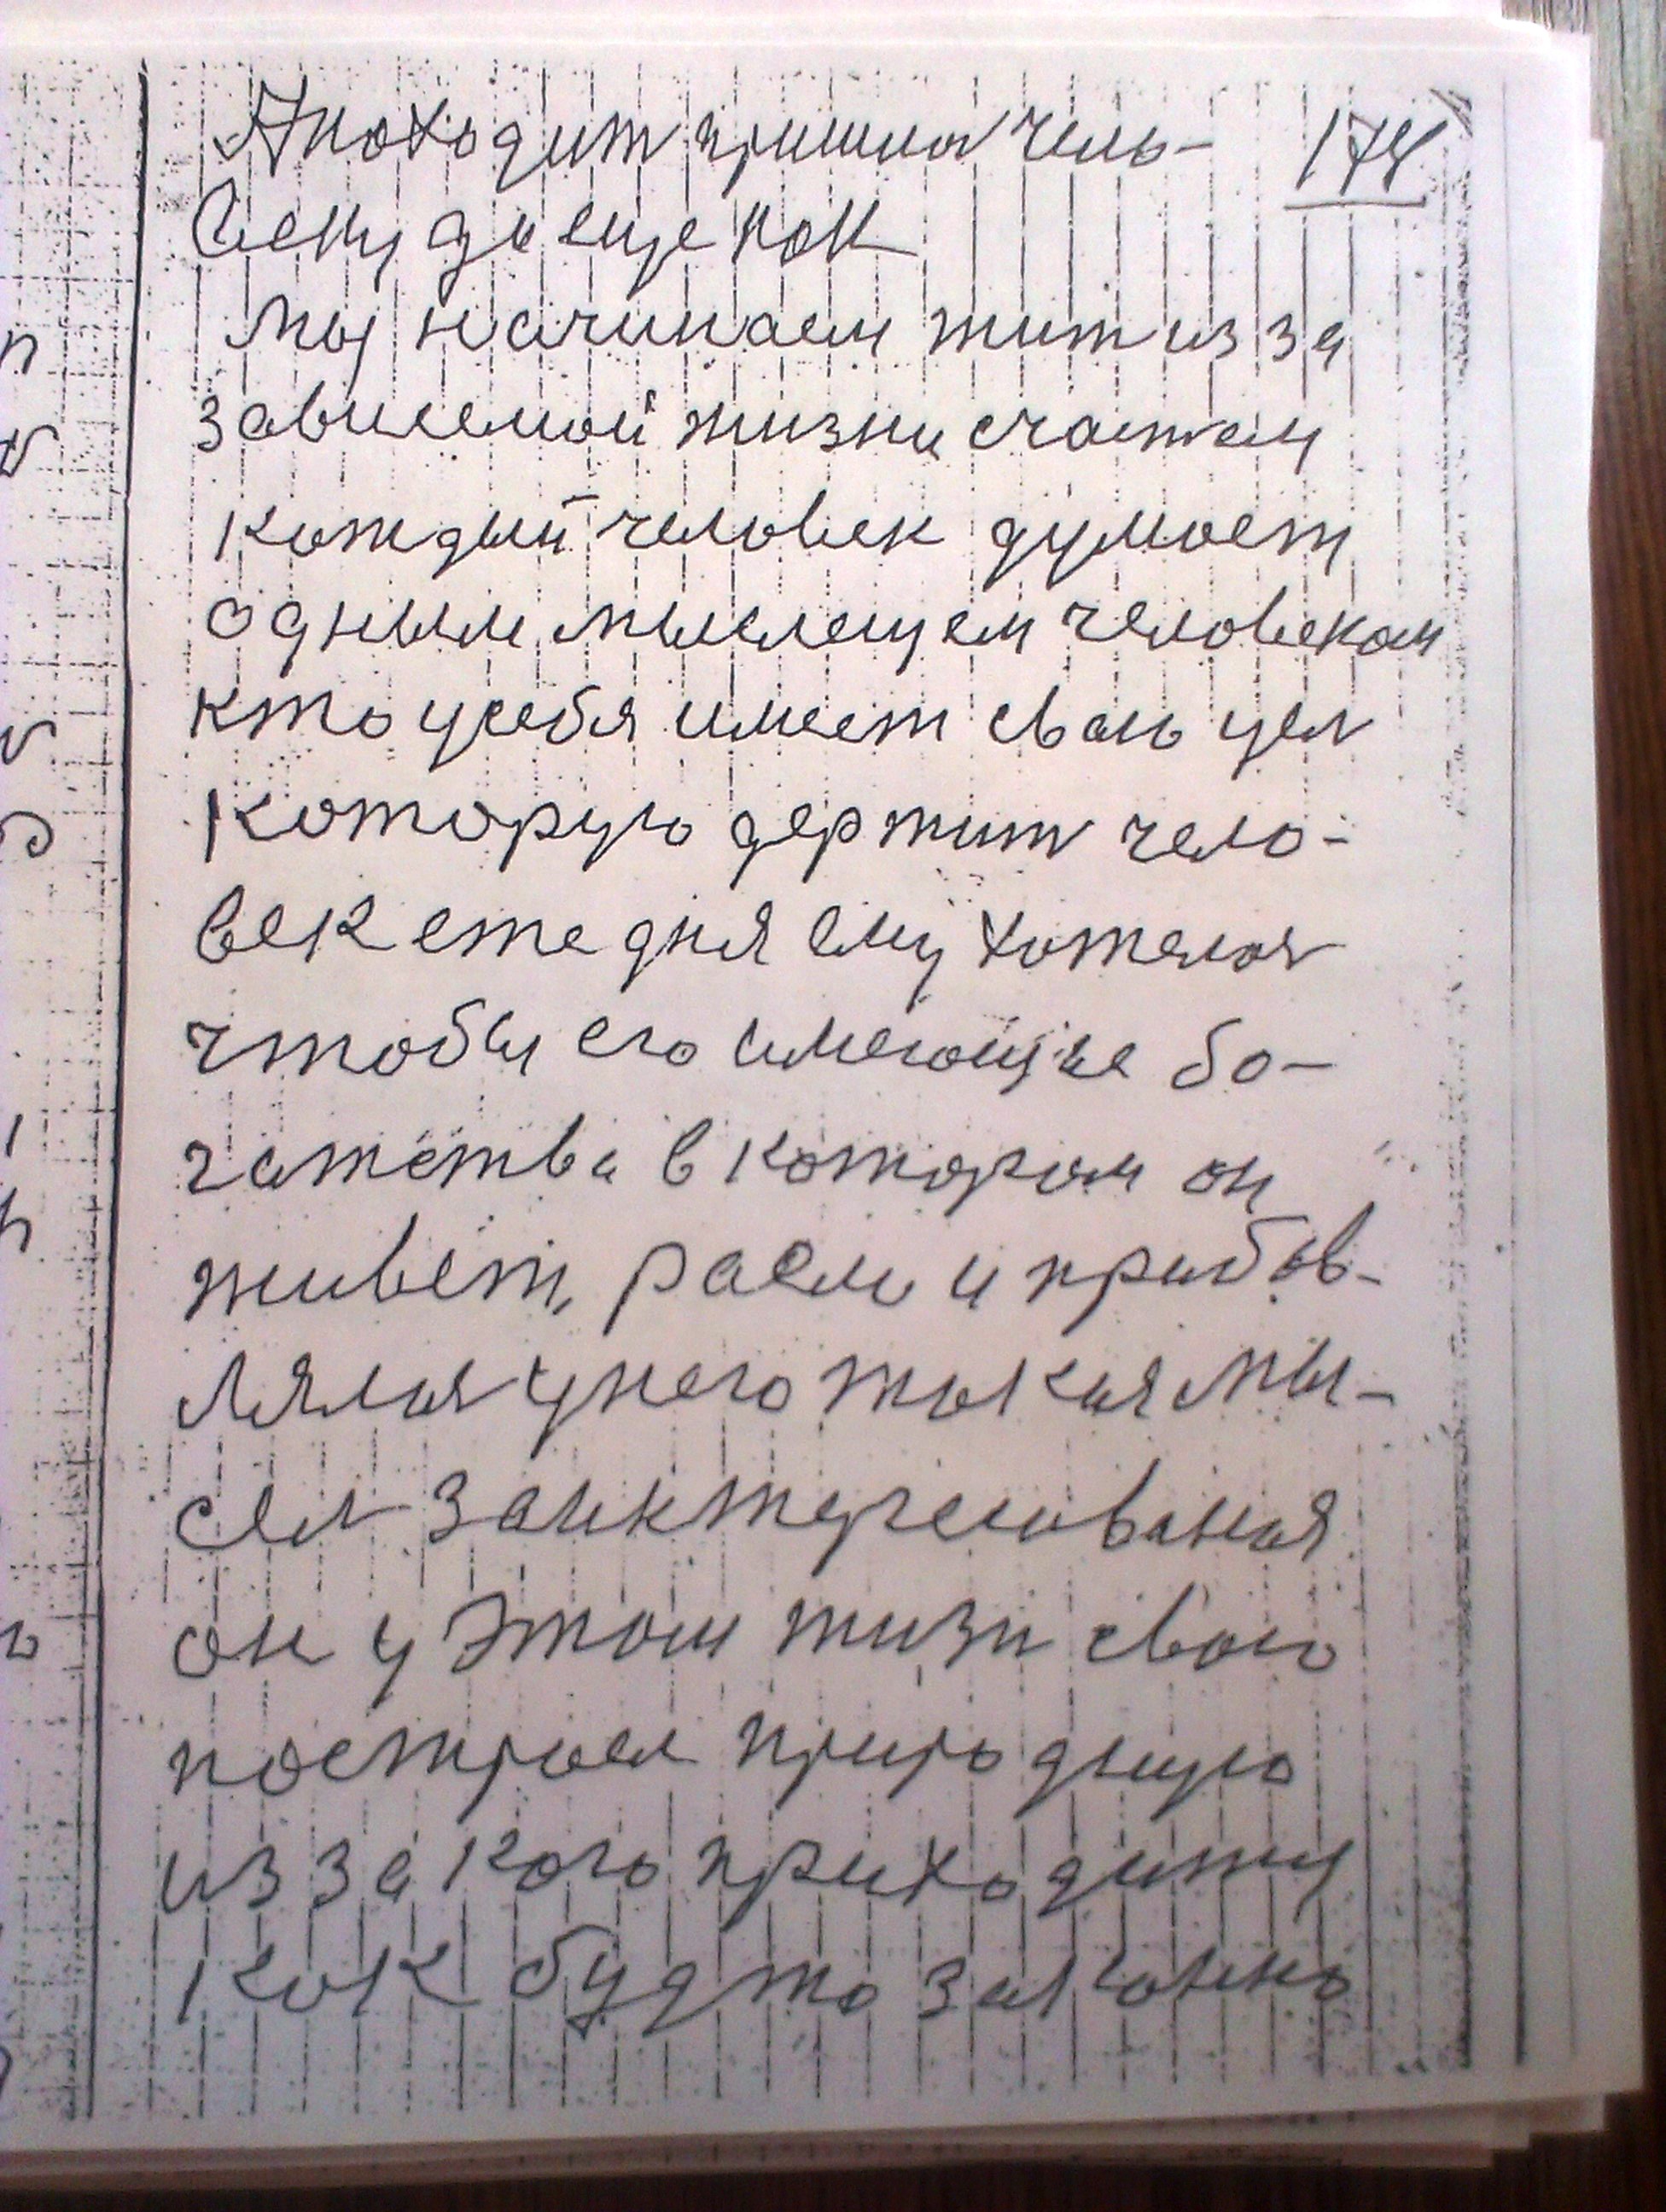 Апоходит пришла чело- 178
веку да еще как
Мы начинаем жит из за
зависемой жизни счатаем
каждый человек думоет
одныым мыслещем человеком
кто усебя имеет сваю цел
которую держит чело-
век еже дня ему хотелоя
чтобы его имеющие бо-
гатства в котором он
живет, расли и прибав-
лялоя унего такая мы-
сел заинтересования
он у этом жизн сваю
построел природную
из за кого приходитя
как будто законно